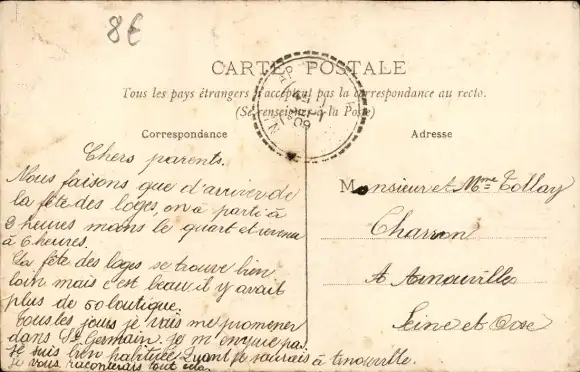 8€
CARTE POSTALE
Tous les pays étrangers n'acceptent pas la correspondance au recto.
(Se renseigner à la Poste)
Correspondance
Chers parents.
Nous faisons que d'arriver de
la fête des loges, on a parti à
heures moins le quart et revenu
à 6 heures.
La fête des loges se trouve bien
loin mais c'est beau il y avait
plus de 50 boutique.
Tous les jours je vais me promener
dans St Germain. Je m'ennuie pas
Je suis bien habituée Quant je saurais à Arnouville.
je vous raconterais tout cela.
Adresse
Monsieur et Mme Tollay
Charron
A Arnouville
Seine et Oise